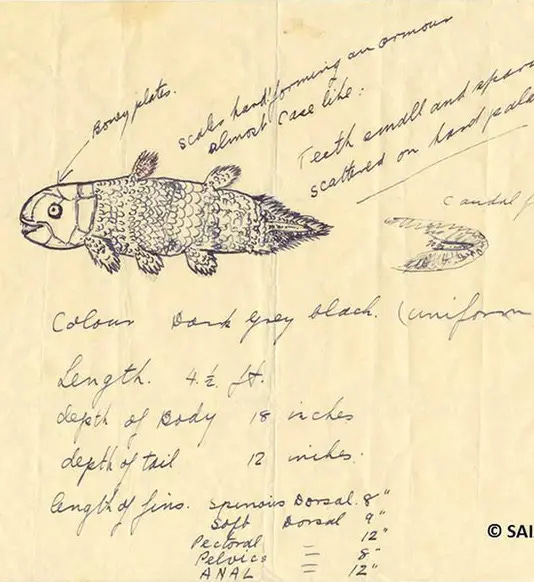 Boney plates.
scales hard forming an armour
almost case like:
Teeth small and
scattered on hard
caudal
Colour Dark grey black. (uniform
Length. 4.½. ft.
depth of Body 18 inches
depth of tail 12 inches.
length of fins. spinous Dorsal. 8"
Soft Dorsal 9"
Pectoral 12"
Pelvic = 8"
ANAL = 12"
© SAI